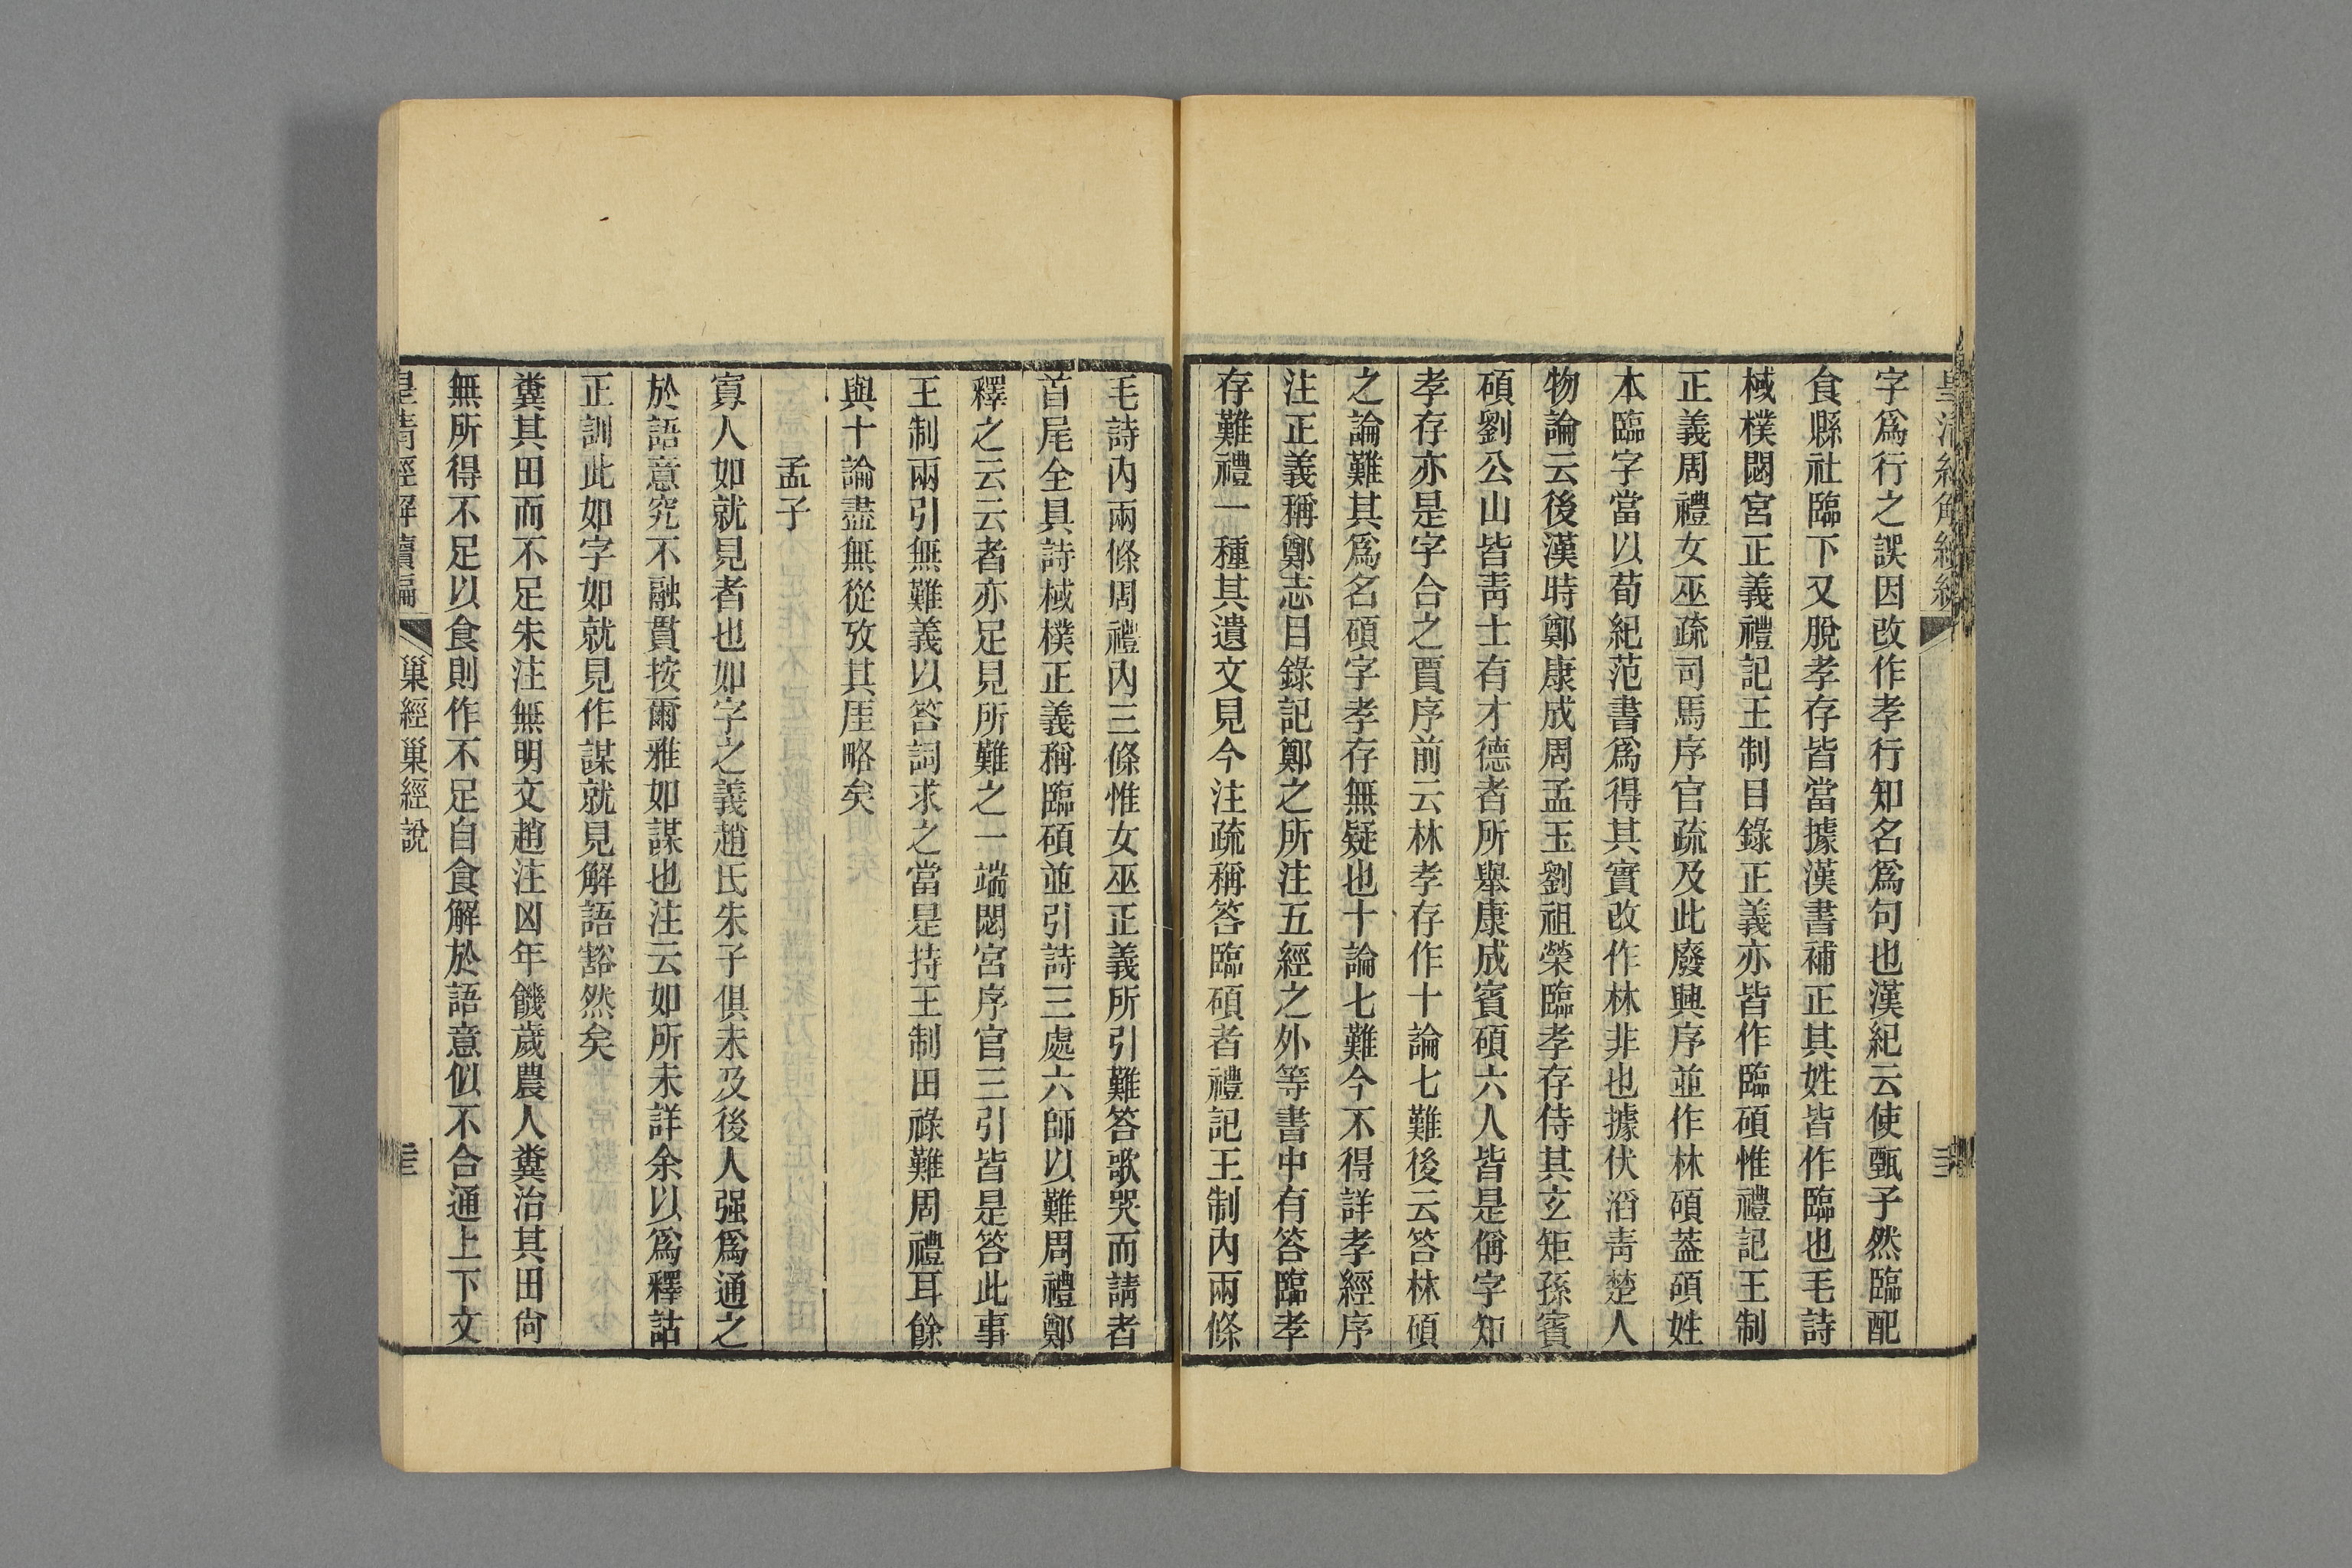 字爲行之誤因改作孝行知名爲句也漢紀云使甄子然臨配
食縣社臨下又脫孝存皆當據漢書補正其姓皆作臨也毛詩
棫樸閟宮正義禮記王制目錄正義亦皆作臨碩惟禮記王制
正義周禮女巫疏司馬序官疏及此廢興序並作林碩葢碩姓
本臨字當以荀紀范書爲得其實改作林非也據伏滔靑楚人
物論云後漢時鄭康成周孟玉劉祖榮臨孝存侍其玄矩孫賓
碩劉公山皆靑士有才德者所舉康成賓碩六人皆是偁字知
孝存亦是字合之賈序前云林孝存作十論七難後云答林碩
之論難其爲名碩字孝存無疑也十論七難今不得詳孝經序
注正義稱鄭志目錄記鄭之所注五經之外等書中有答臨孝
存難禮一種其遺文見今注疏稱答臨碩者禮記王制內兩條
毛詩內兩條周禮內三條惟女巫正義所引難答歌哭而請者
首尾全具詩棫樸正義稱臨碩並引詩三處六師以難周禮鄭
釋之云云者亦足見所難之一端閟宮序官三引皆是答此事
王制兩引無難義以答詞求之當是持王制田祿難周禮耳餘
與十論盡無從攷其厓略矣
孟子
寡人如就見者也如字之義趙氏朱子俱未及後人强爲通之
於語意究不融貫按爾雅如謀也注云如所未詳余以爲釋詁
正訓此如字如就見作謀就見解語豁然矣
糞其田而不足朱注無明文趙注凶年饑歲農人糞治其田尙
無所得不足以食則作不足自食解於語意似不合通上下文
皇淸經解續編
巢經巢經說